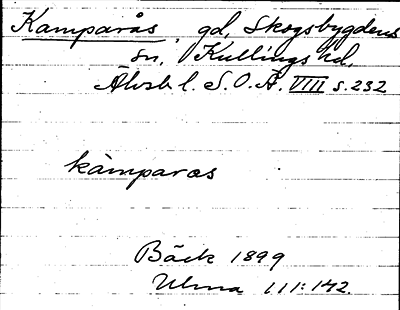 Kamparås, gd, Skogsbygdens
sn, Kullings hd,
Älvsb. l. S. O. Ä. VIII s. 232
kàmparas
Bäck 1899
Ulma 111:142.